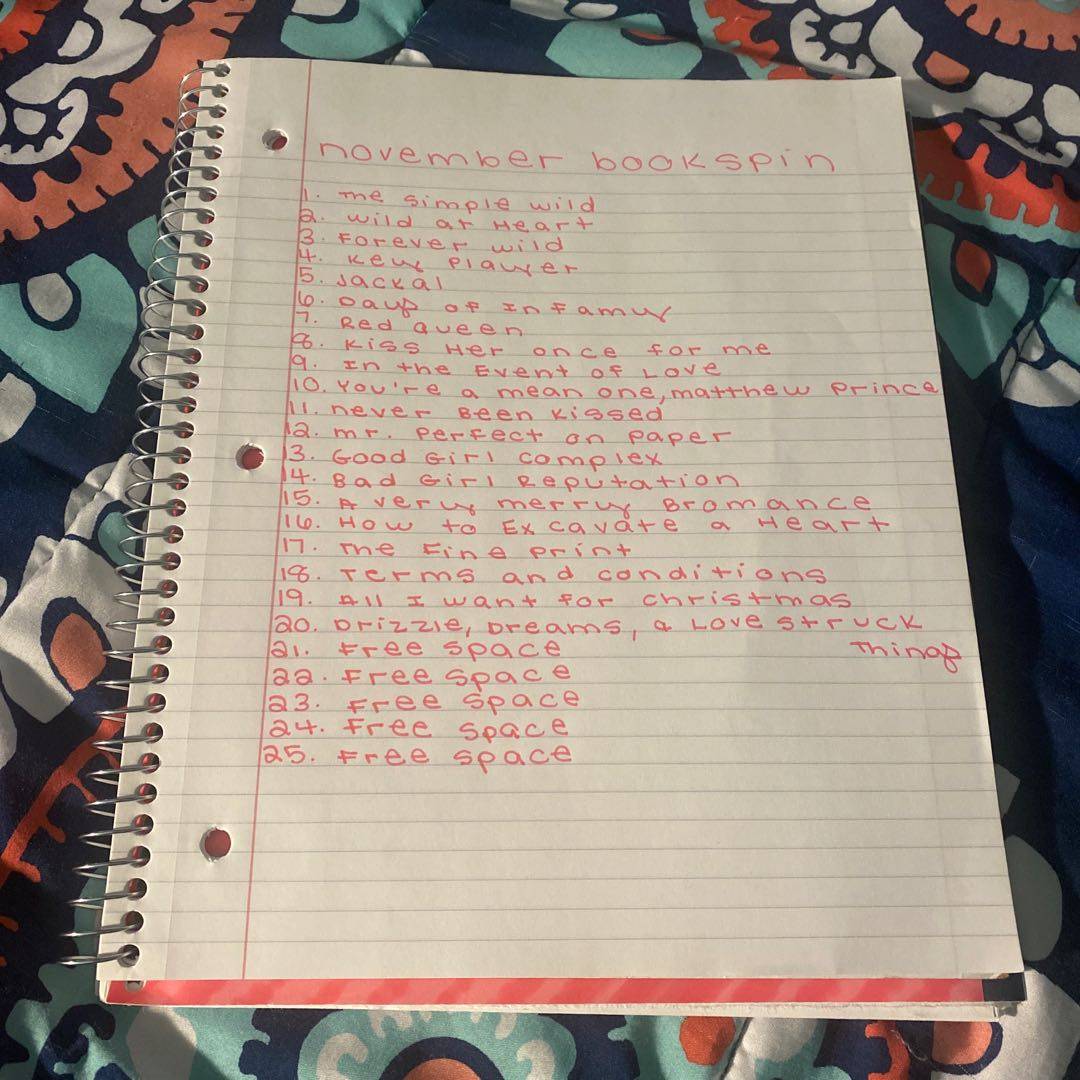 november bookspin
1. The simple wild
2. wild at Heart
3. Forever wild
4. Key Player
5. Jackal
6. Days of Infamy
7. Red Queen
8. Kiss Her once for me
9. In the Event of Love
10. You're a mean one, matthew prince
11. never Been Kissed
12. mr. Perfect on Paper
13. Good Girl Complex
14. Bad Girl Reputation
15. A very merry Bromance
16. How to Excavate a Heart
17. The Fine print
18. Terms and conditions
19. All I want for christmas
20. Drizzle, Dreams, & Love struck
Things
21. Free space
22. Free space
23. Free space
24. Free space
25. Free space